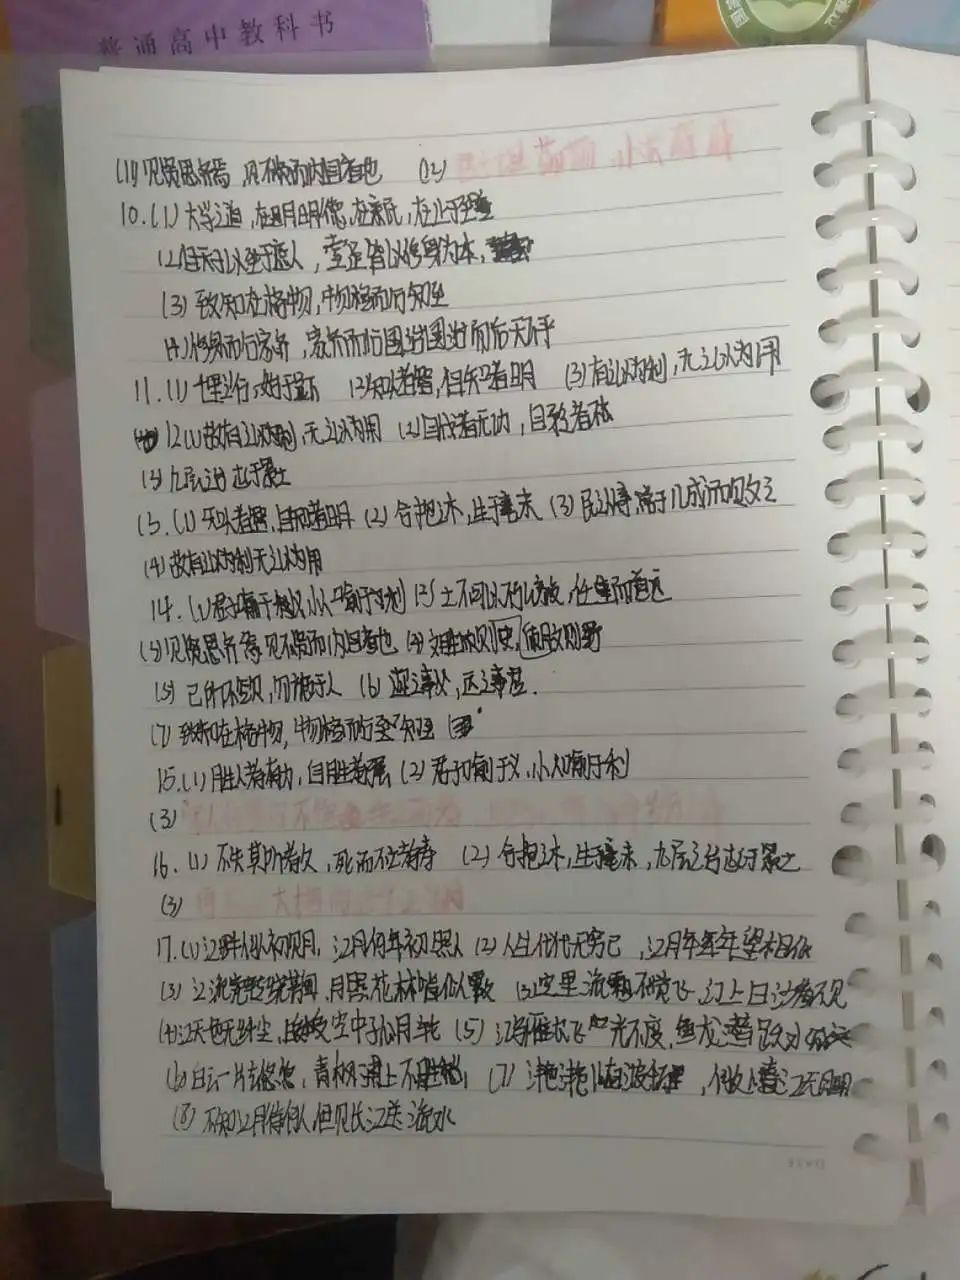 普通高中教科书
(11) 见贤思齐焉，见不贤而内自省也 (12)
10.(1) 大学之道，在明明德，在亲民，在止于至善
(2)自天子以至于庶人，壹是皆以修身为本，
(3) 致知在格物，物格而后知至
(4)修身而后家齐，家齐而后国治国治而后天下平
11.(1) 千里之行，始于足下 (2)知人者智，自知者明 (3)有之以为利，无之以为用
12(1)故有之以为利，无之以为用 (2)自伐者无功，自矜者不长
(3) 九层之台 起于累土
13.(1)知人者智，自知者明 (2) 合抱之木，生于毫末 (3) 民之从事，常于几成而败之
(4)故有之以为利无之以为用
14.(1)君子喻于义，小人喻于利 (2)士不可以不弘毅，任重而道远
(3)见贤思齐焉，见不贤而内自省也 (4) 文胜质则史，质胜文则野
(5) 己所不欲，勿施于人 (6) 迩之事父，远之事君.
(7) 致知在格物，物格而后知至
15.(1)胜人者有力，自胜者强 (2)君子喻于义，小人喻于利
(3)
16.(1) 不失其所者久，死而不亡者寿 (2) 合抱之木，生于毫末，九层之台起于累土
(3)
17.(1)江畔何人初见月，江月何年初照人 (2)人生代代无穷已，江月年年望相似
(3) 江流宛转绕芳甸，月照花林皆似霰 (3)空里流霜不觉飞，汀上白沙看不见
(4)江天一色无纤尘，皎皎空中孤月轮 (5) 鸿雁长飞光不度，鱼龙潜跃水成文
(6)白云一片去悠悠，青枫浦上不胜愁 (7) 滟滟随波千万里，何处春江无月明
(8) 不知江月待何人，但见长江送流水